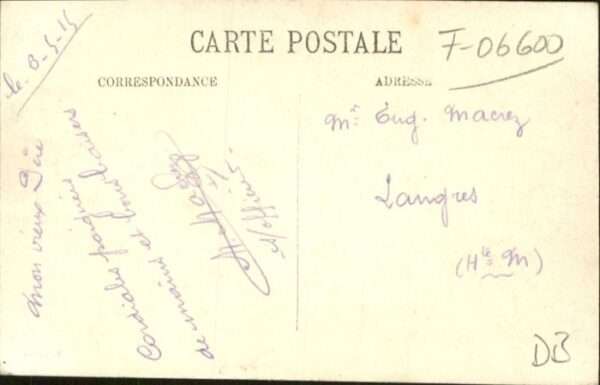 CARTE POSTALE
F-06600
CORRESPONDANCE
ADRESSE
le 8-5-15
Mon vieux
Cordiales poignées
de mains et bons baisers
Mr Eug. Macrez
Langres
(Hte M)
DB